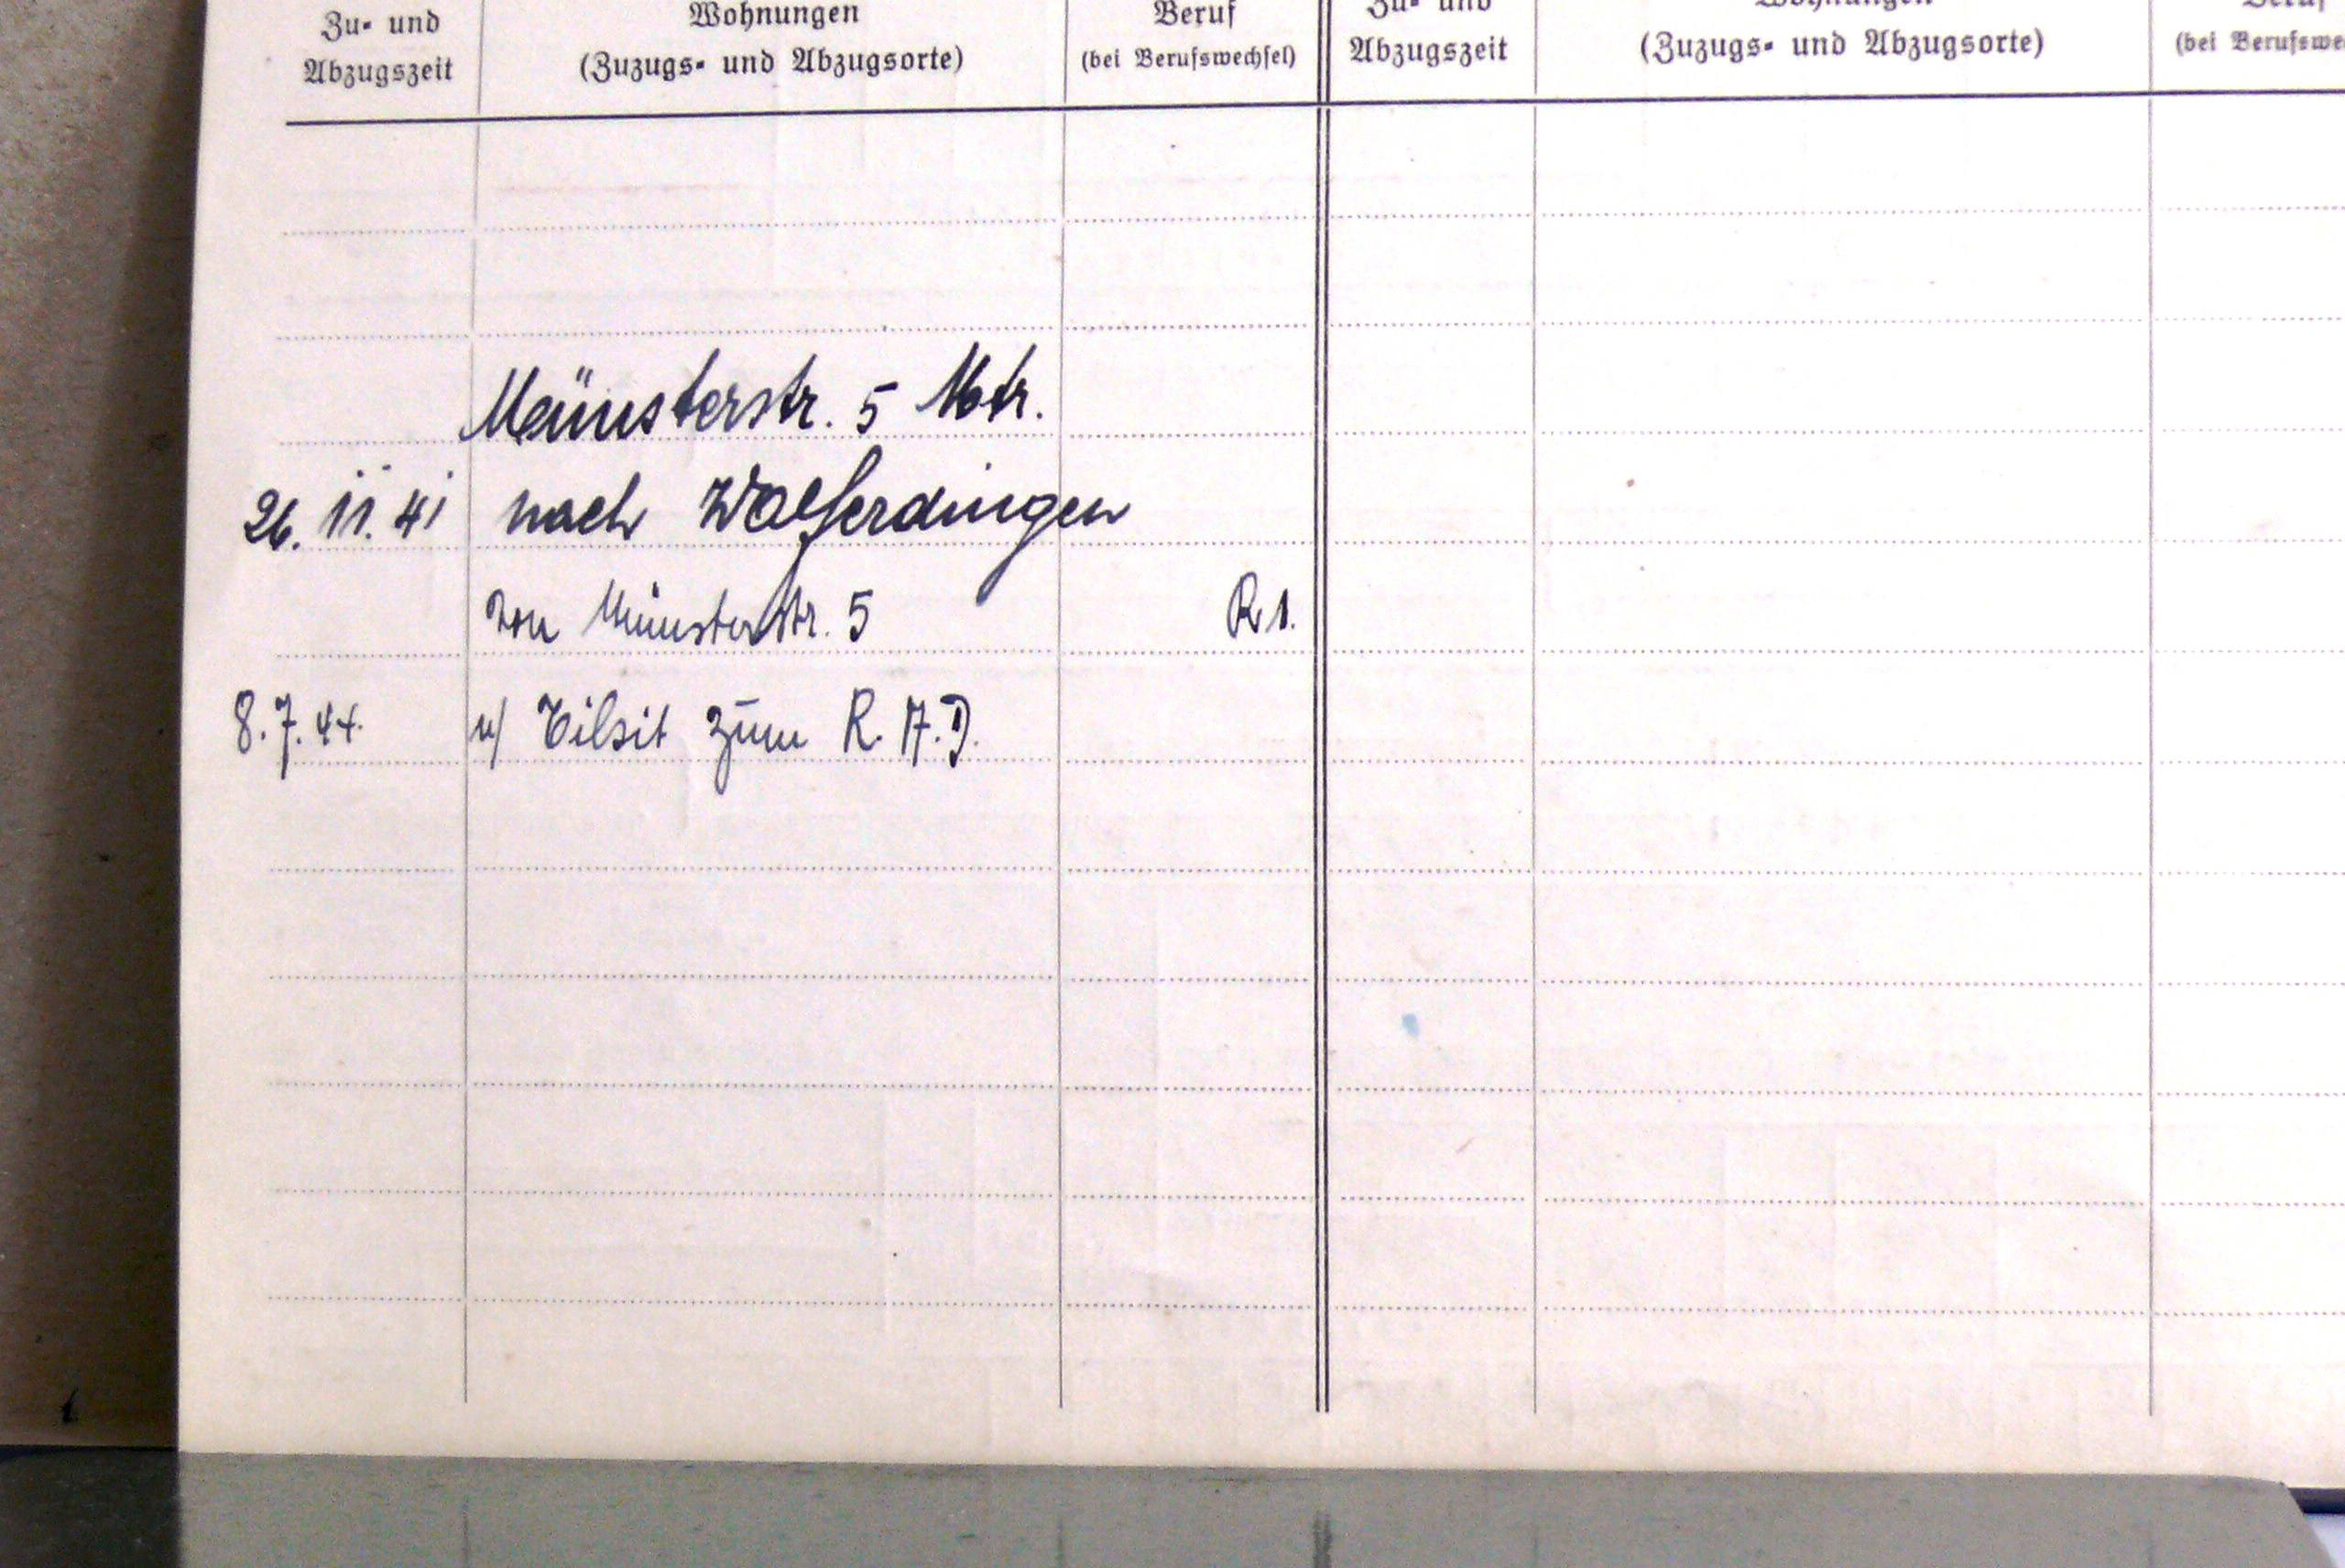 Zu- und Abzugszeit
Wohnungen (Zuzugs- und Abzugsorte)
Beruf (bei Berufswechsel)
Zu- und Abzugszeit
Wohnungen (Zuzugs- und Abzugsorte)
Beruf (bei Berufswe
Münsterstr. 5 Mtr.
26. 11. 41 nach Wolferdingen
von Münsterstr. 5 R. 1.
8. 7. 44. n/ Tilsit zum R. A. D.